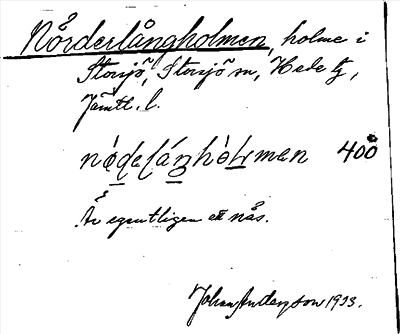 Nörderlångholmen, holme i
Storsjö, Storsjö sn, Hede tg,
Jämtl. l.
400
Är egentligen ett näs.
Johan Anderson 1933.